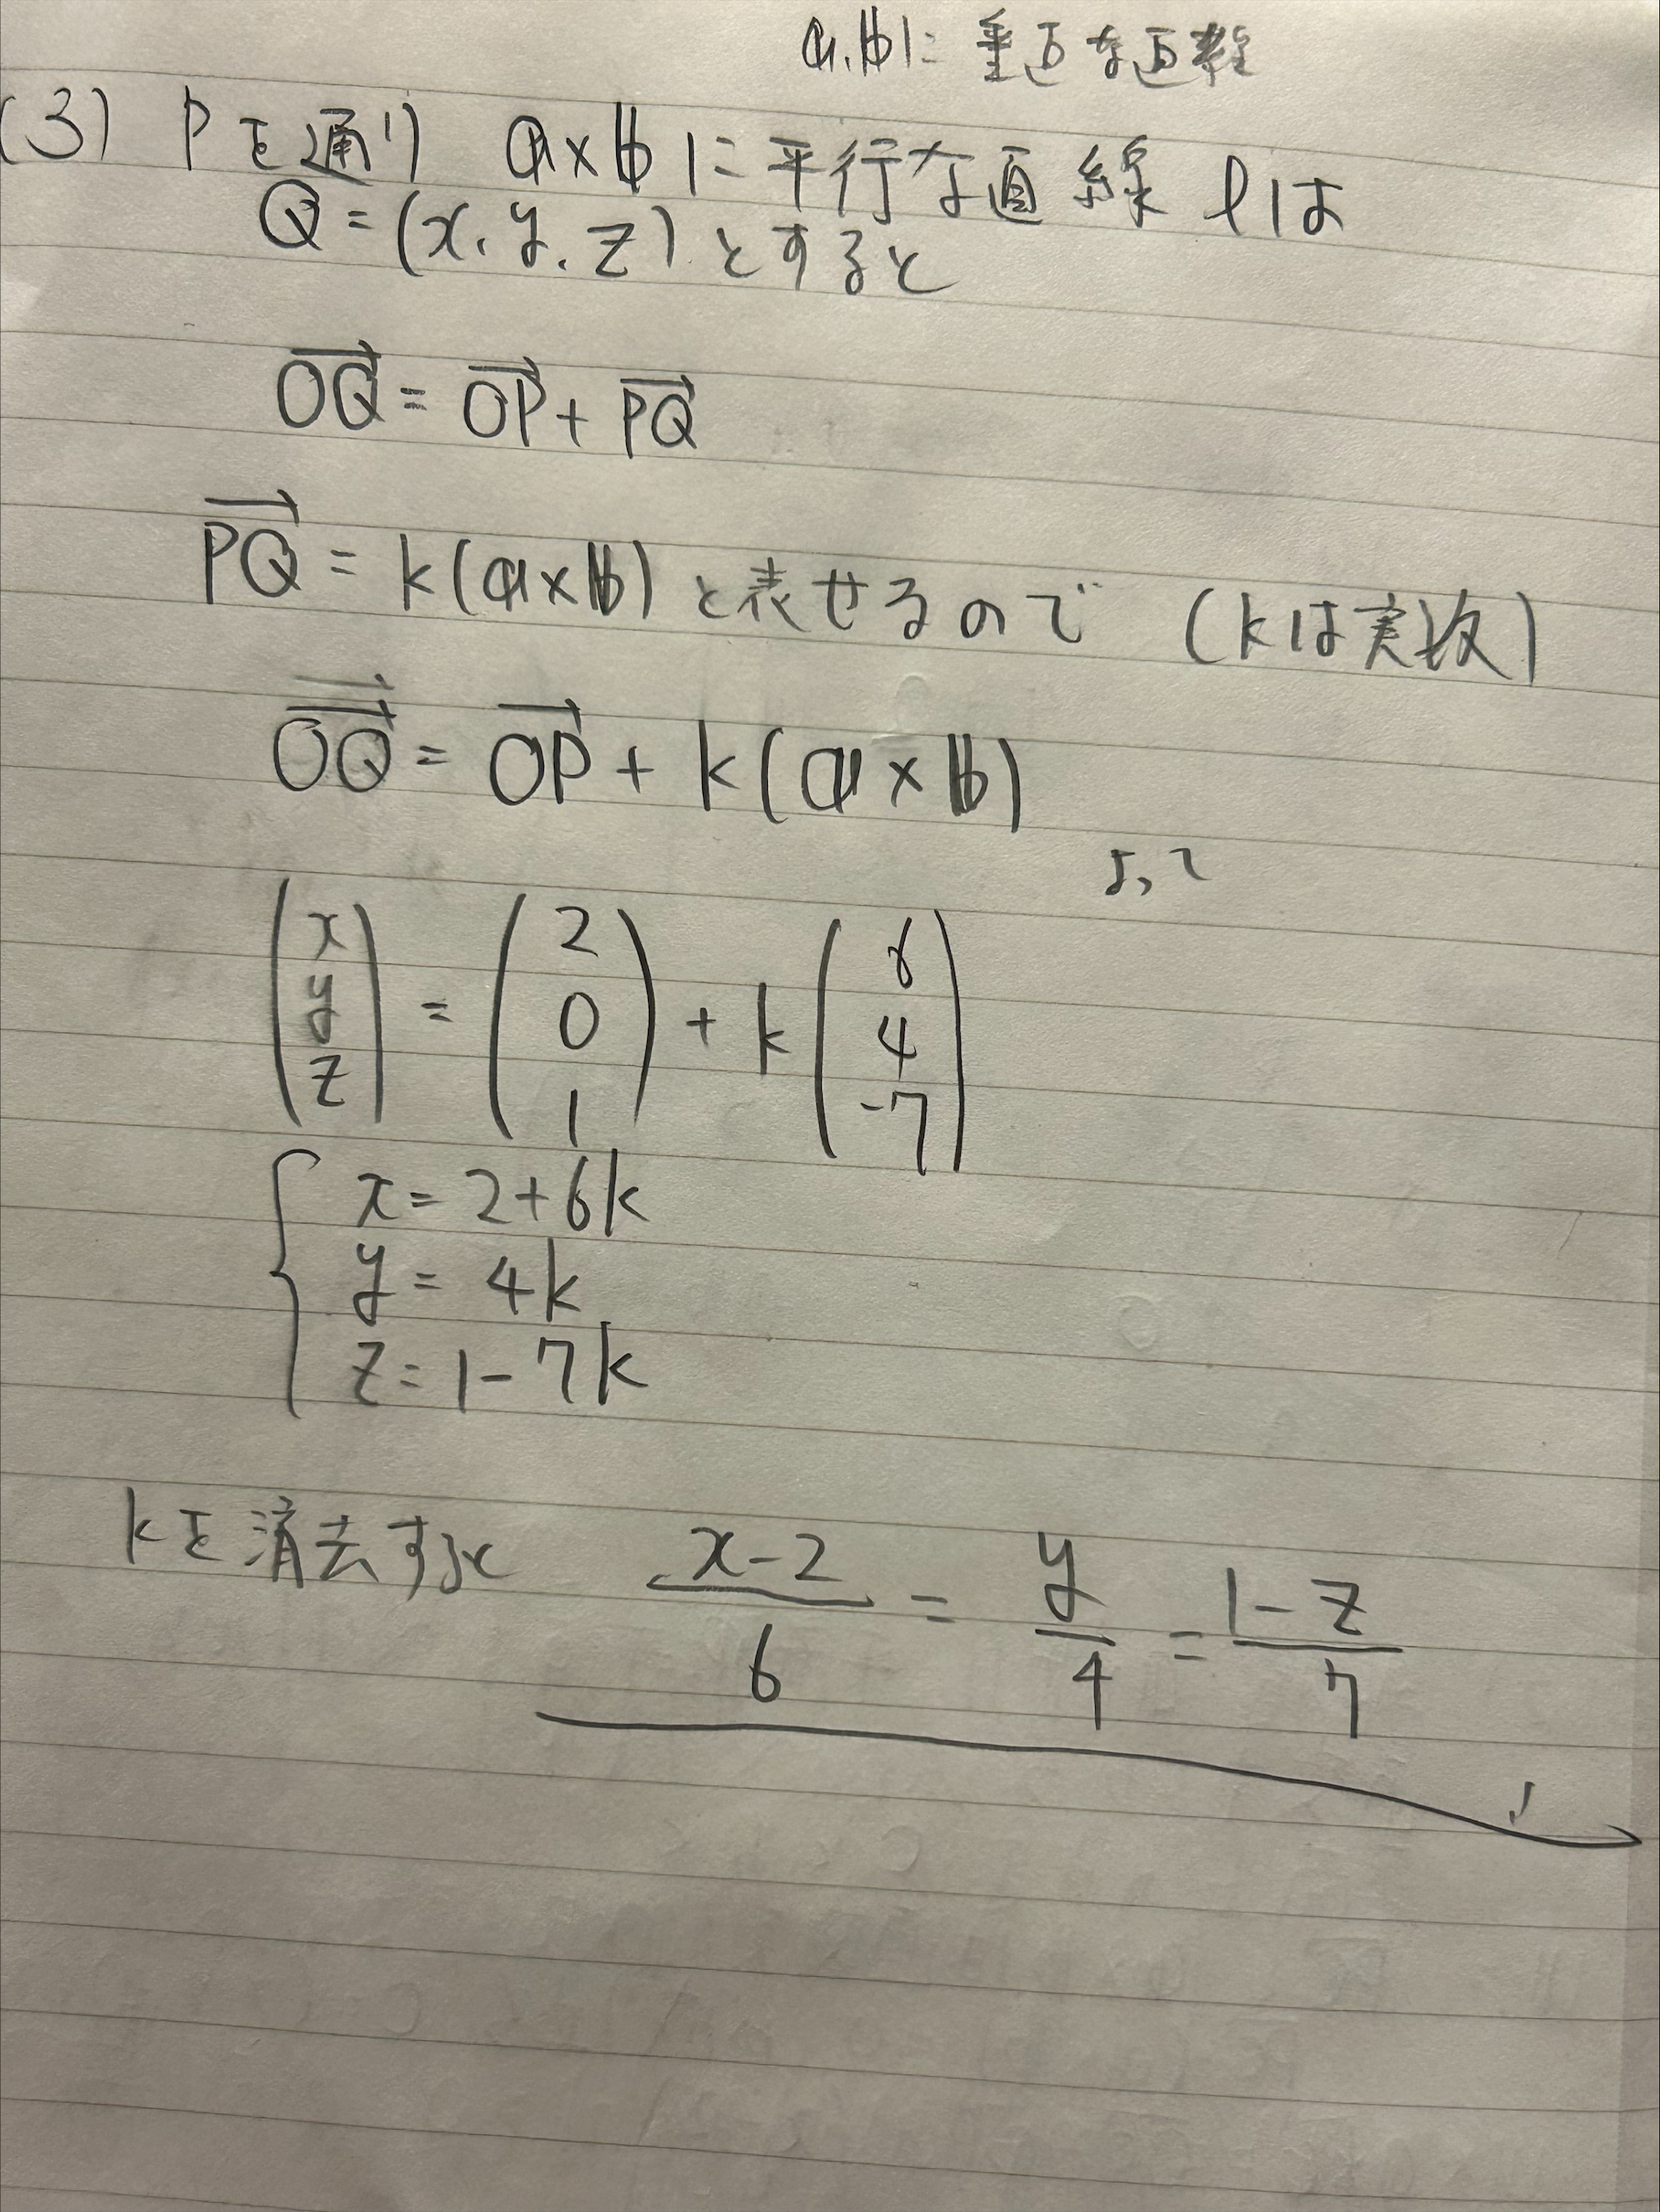 a,bに垂直な直線
(3) Pを通り a×bに平行な直線 lは
Q=(x,y,z)とすると
→OQ = →OP + →PQ
→PQ = k(a×b)と表せるので (kは実数)
→OQ = →OP + k(a×b)
よって
(x y z) = (2 0 1) + k(6 4 -7)
x=2+6k
y=4k
z=1-7k
kを消去すると (x-2)/6 = y/4 = (1-z)/7